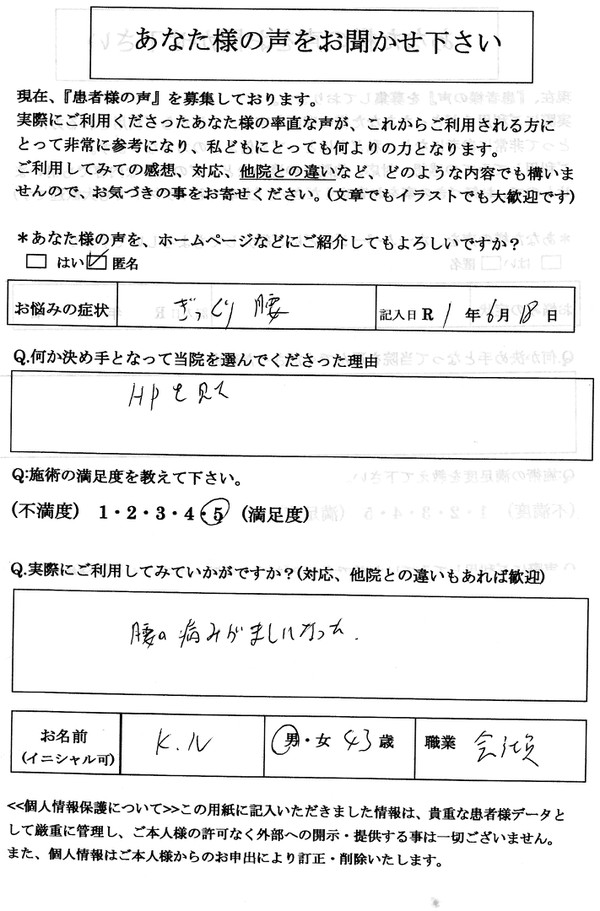 あなた様の声をお聞かせ下さい
現在、『患者様の声』を募集しております。
実際にご利用くださったあなた様の率直な声が、これからご利用される方に
とって非常に参考になり、私どもにとっても何よりの力となります。
ご利用してみての感想、対応、他院との違いなど、どのような内容でも構いま
せんので、お気づきの事をお寄せください。(文章でもイラストでも大歓迎です)
＊あなた様の声を、ホームページなどにご紹介してもよろしいですか？
□ はい ☑ 匿名
お悩みの症状 ぎっくり腰 記入日 R 1 年 6 月 18 日
Q.何か決め手となって当院を選んでくださった理由
HPを見て
Q:施術の満足度を教えて下さい。
(不満度) 1・2・3・4・5 (満足度)
Q.実際にご利用してみていかがですか？(対応、他院との違いもあれば歓迎)
腰の病みがましになった.
お名前 K.N 男・女 43 歳 職業
(イニシャル可)
<<個人情報保護について>>この用紙に記入いただきました情報は、貴重な患者様データと
して厳重に管理し、ご本人様の許可なく外部への開示・提供する事は一切ございません。
また、個人情報はご本人様からのお申出により訂正・削除いたします。